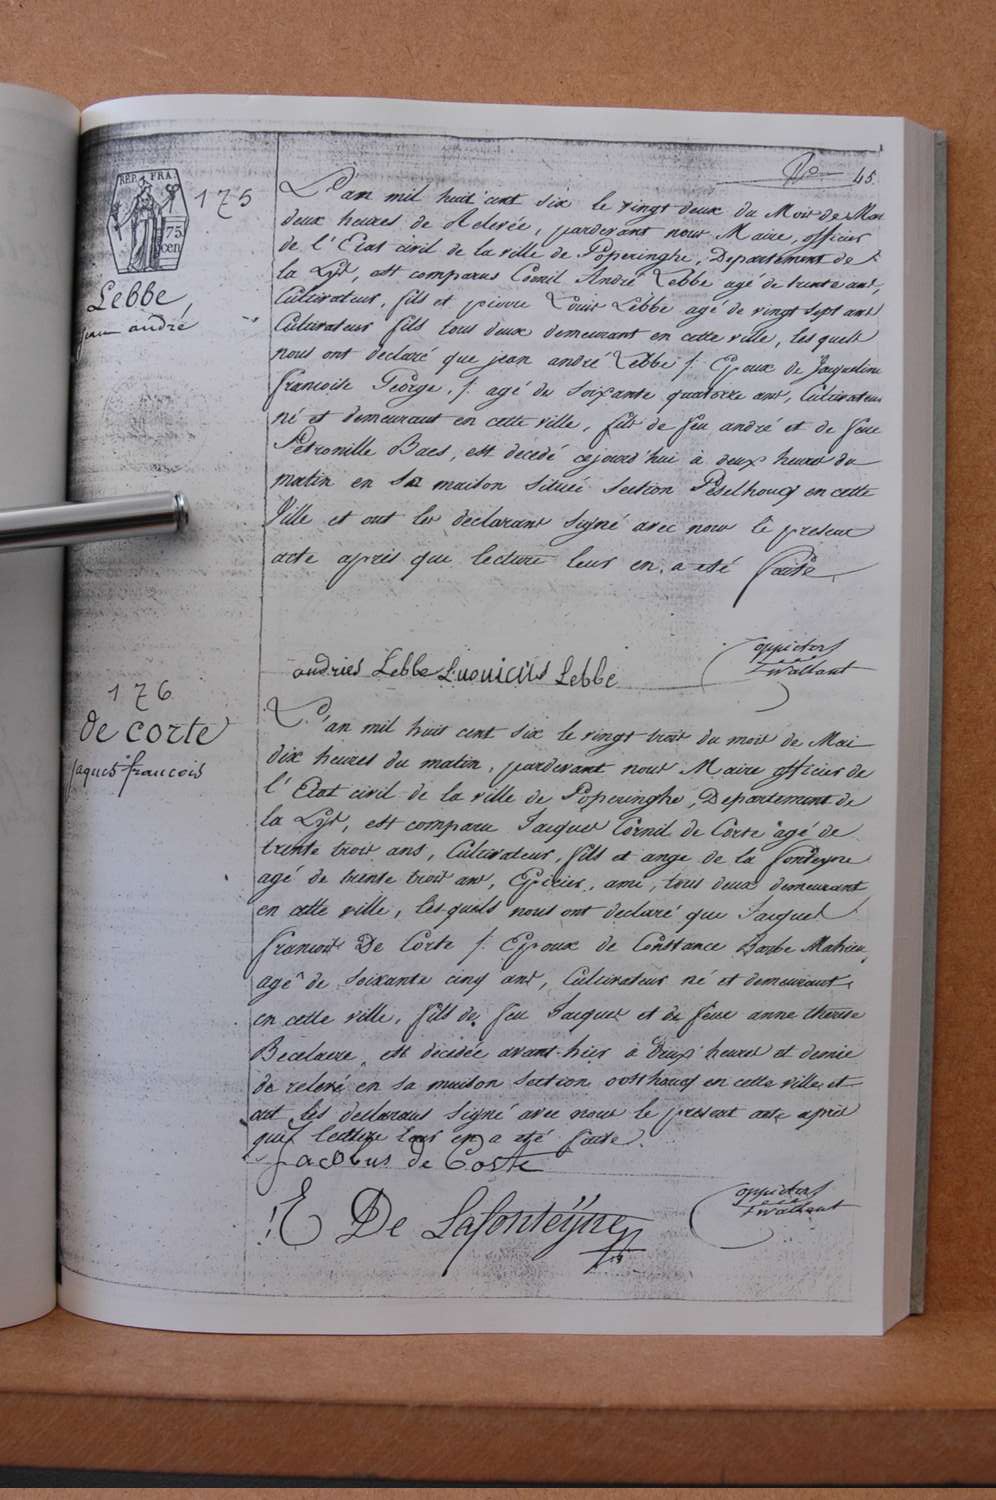 No 45
REP. FRA.
75
cen
175
Lebbe,
jean andré
L'an mil huit cent six le vingt deux du Mois de Mai
deux heures de Relevée, pardevant nous Maire, officier
de l'Etat civil de la ville de Poperinghe, Departement de
la Lys, est comparus Cornil André Lebbe agé de trente ans,
Cultivateur, fils et pierre Louis Lebbe agé de vingt sept ans
Cultivateur fils tous deux demeurant en cette ville, les quels
nous ont declaré que jean andré Lebbe /: Epoux de Jacqueline
francoise George, /: agé de soixante quatorze ans, Cultivateur
né et demeurant en cette ville, fils de feu andré et de feue
Petronille Baes, est décédé cejourd'hui à deux heures du
matin en sa maison située section Peselhoucq en cette
Ville et ont les declarans signé avec nous le present
acte après que lecture leur en a eté faite
andries Lebbe Luouicus Lebbe
176
de corte
jaques francois
L'an mil huit cent six le vingt trois du mois de Mai
dix heures du matin, pardevant nous Maire officier de
l'Etat civil de la ville de Poperinghe, Departement de
la Lys, est comparu Jacques Cornil de Corte agé de
trente trois ans, Cultivateur, fils et ange de la fonteyne
agé de trente trois ans, Epicier, ami, tous deux demeurant
en cette ville, lesquels nous ont declaré que Jacques
francois De Corte /: Epoux de Constance Barbe Mahieu,
agé de soixante cinq ans, Cultivateur né et demeurant
en cette ville, fils de feu Jacques et de feue anne therese
Becelaere, est décédée avant-hier à deux heures et demie
de relevé en sa maison section oosthoucq en cette ville et
ont les declarans signé avec nous le present acte après
que lecture leur en a eté faite.
Jacobus de Corte
E De Lafonteÿne